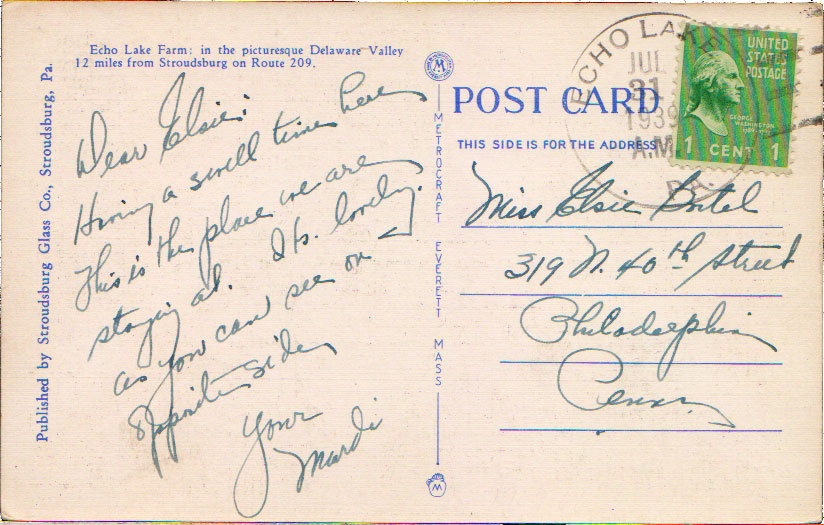 Echo Lake Farm: in the picturesque Delaware Valley
12 miles from Stroudsburg on Route 209.
Published by Stroudsburg Glass Co., Stroudsburg, Pa.
Dear Elsie:
Having a swell time here
This is the place we are
staying at. Its lovely.
as you can see on
opposite side,
Your
Mardi
METROCRAFT EVERETT MASS
M
POST CARD
THIS SIDE IS FOR THE ADDRESS
ECHO LAKE
JUL
31
1939
A.M.
PA.
UNITED
STATES
POSTAGE
GEORGE
WASHINGTON
1789-1797
1 CENT 1
Miss Elsie
319 N. 40th Street
Philadelphia
Penna,